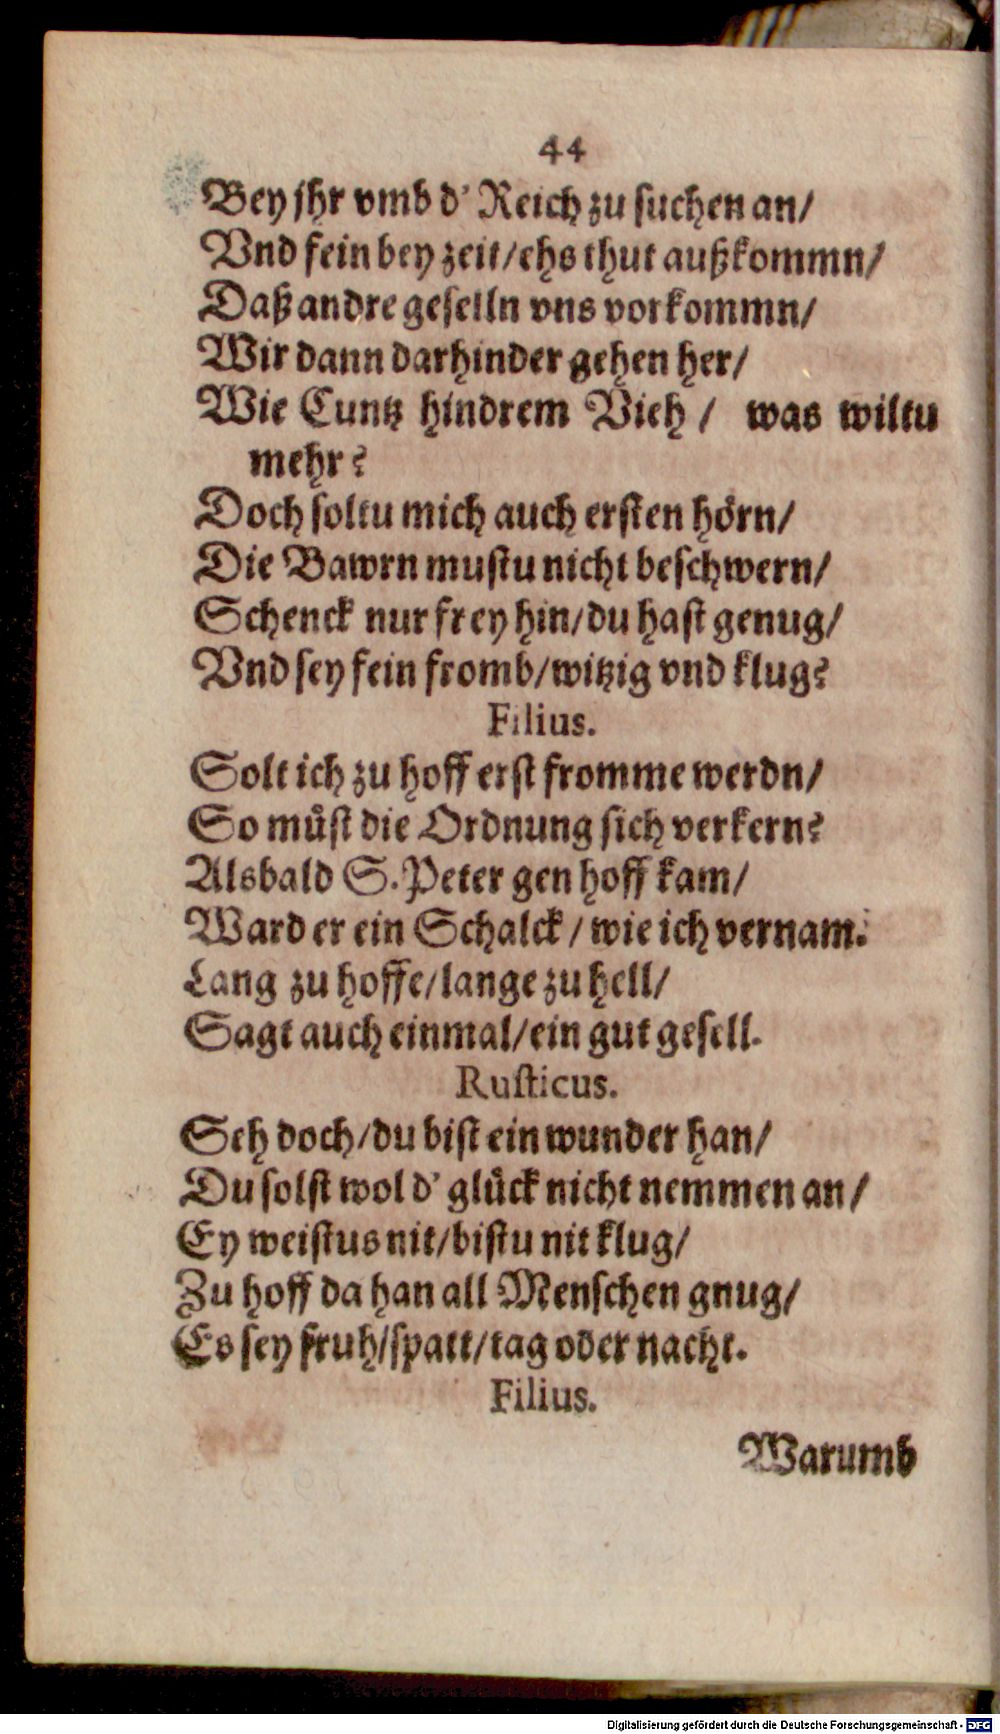 44
Bey jhr vmb d' Reich zu suchen an/
Vnd fein bey zeit/ehs thut außkommn/
Daß andre geselln vns vorkommn/
Wir dann darhinder gehen her/
Wie Cuntz hindrem Vieh / was wiltu
mehr?
Doch soltu mich auch ersten hörn/
Die Bawrn mustu nicht beschwern/
Schenck nur frey hin/du hast genug/
Vnd sey fein fromb/witzig vnd klug?
Filius.
Solt ich zu hoff erst fromme werdn/
So müst die Ordnung sich verkern?
Alsbald S. Peter gen hoff kam/
Ward er ein Schalck / wie ich vernam.
Lang zu hoffe/lange zu hell/
Sagt auch einmal/ein gut gesell.
Rusticus.
Seh doch/du bist ein wunder han/
Du solst wol d' glück nicht nemmen an/
Ey weistus nit/bistu nit klug/
Zu hoff da han all Menschen gnug/
Es sey fruh/spatt/tag oder nacht.
Filius.
Warumb
Digitalisierung gefördert durch die Deutsche Forschungsgemeinschaft - DFG